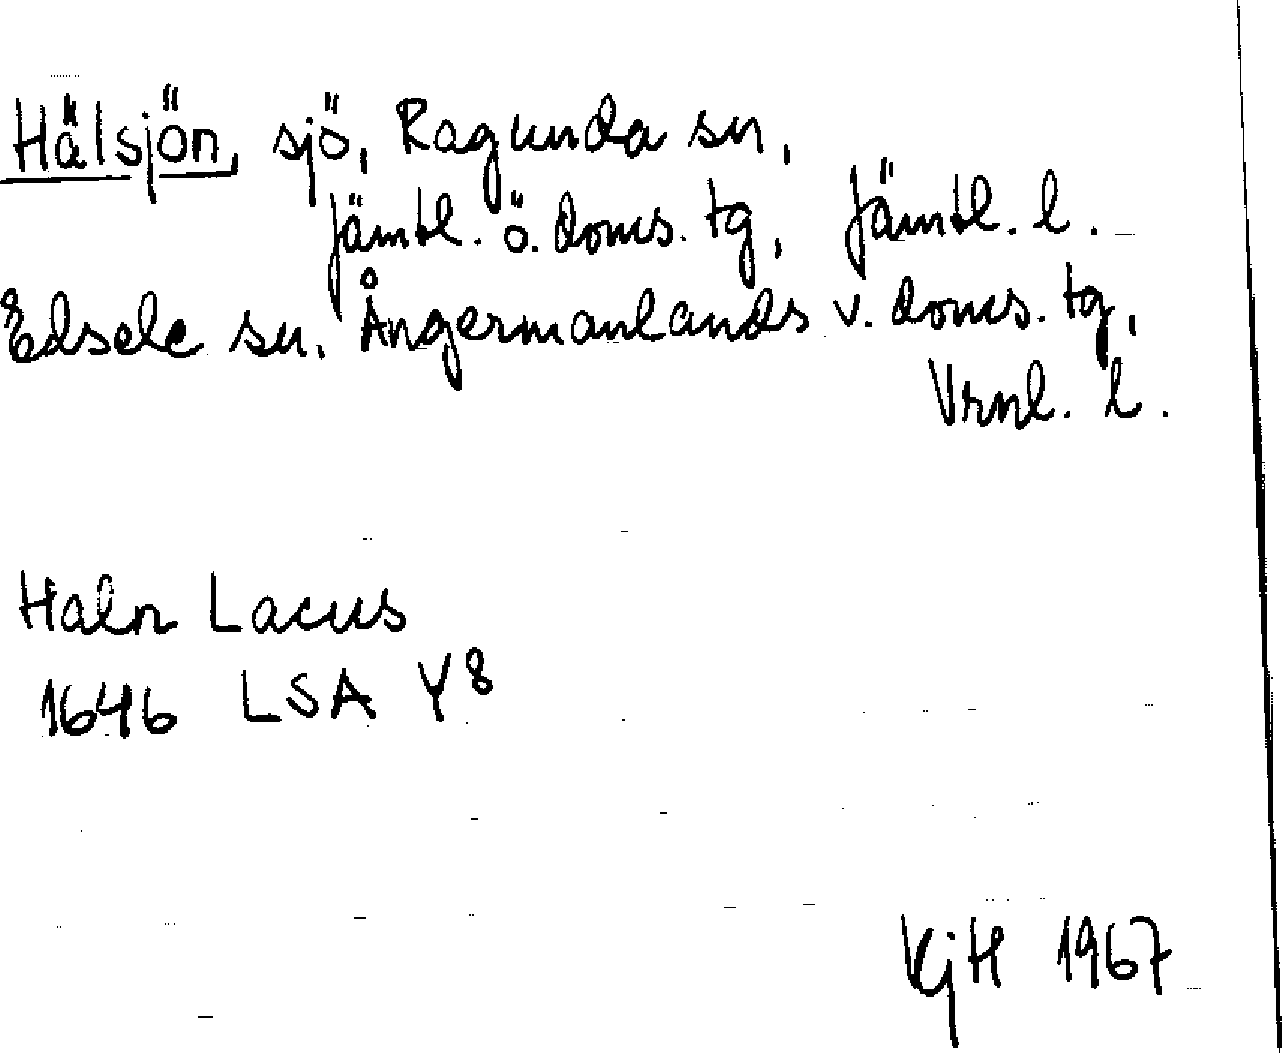 Hälsjön, sjö, Ragunda sn,
Jämtl. ö. doms. tg, Jämtl. l.
Edsele sn, Ångermanlands v. doms. tg,
Vrnl. l.
Haln Lacus
1646 LSA Y8
KjH 1967